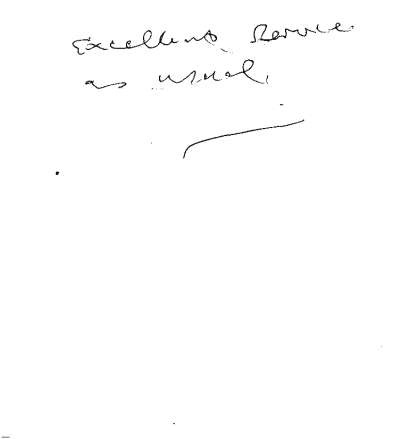 Excellent Service
as usual.